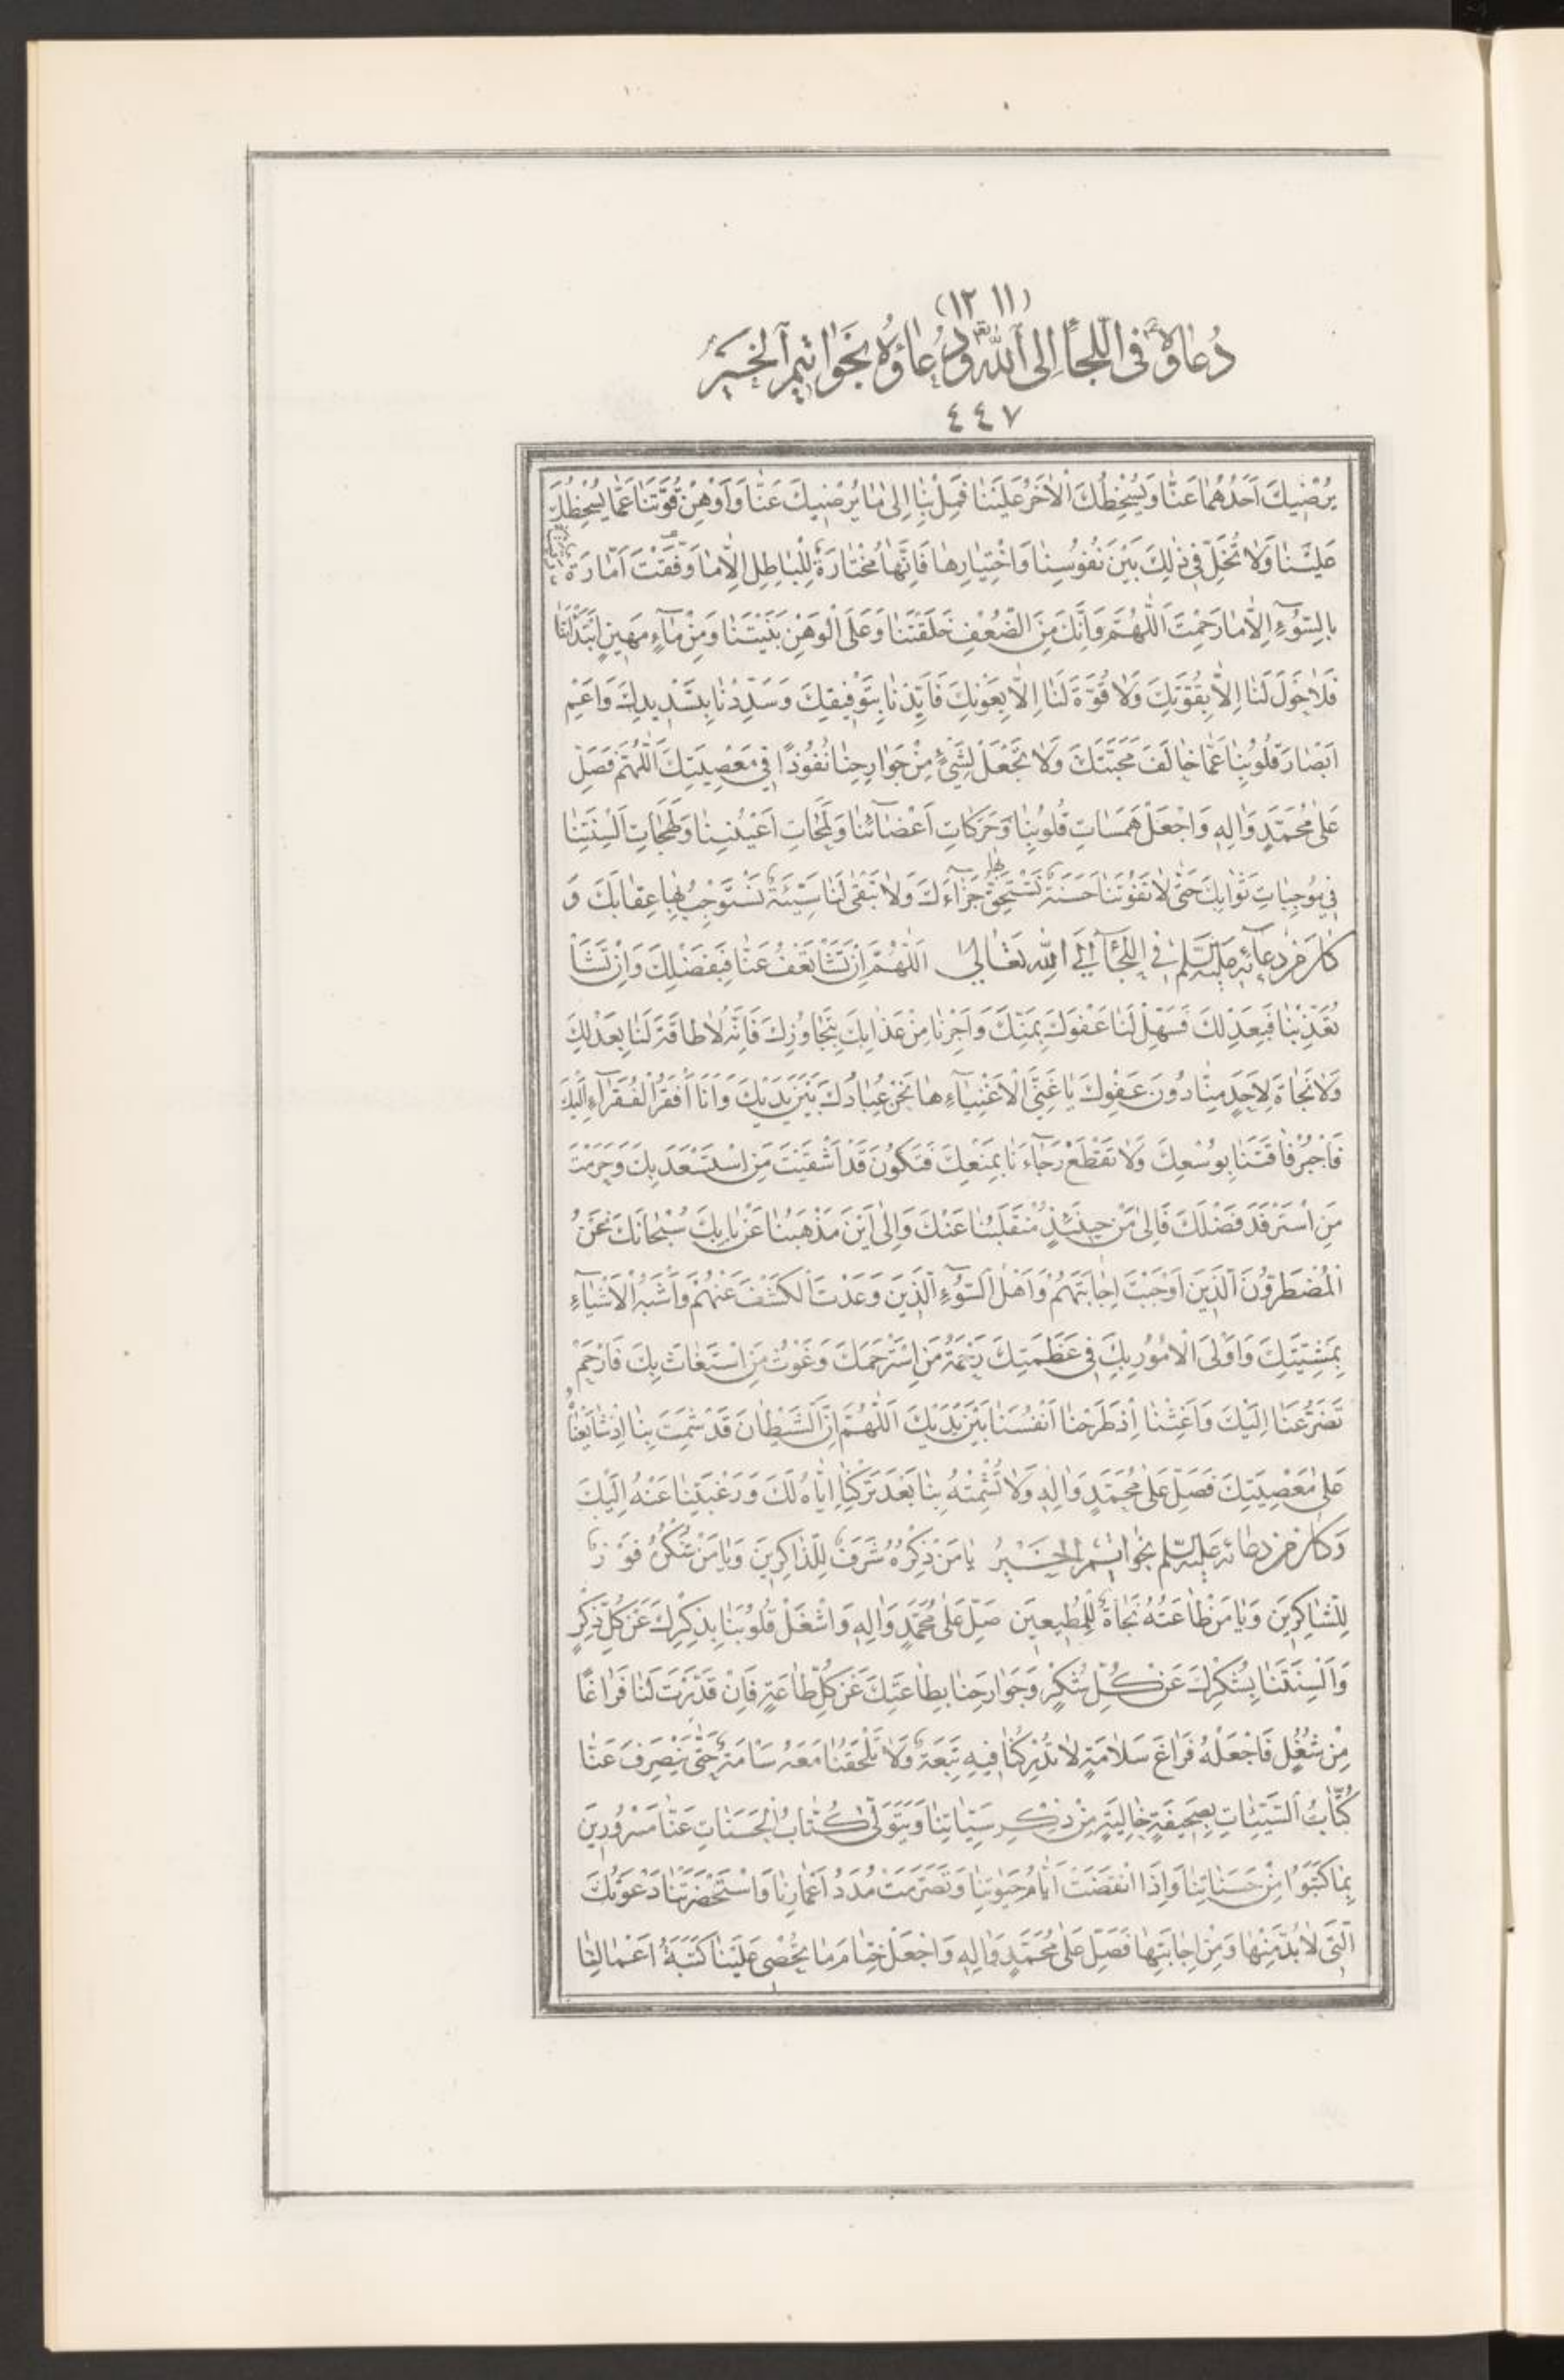 (١١ ١٢)
دُعاؤه فِى اللَّجَأ إِلَى اللهِ وَدُعاؤُهُ بِخَواتِيمِ الْخَيْرِ
٤٤٧
يُرْضِيكَ اَحَدُهُمَا عَنَّا وَيُسْخِطُكَ الْاٰخَرُ عَلَيْنَا فَمِلْ بِنَا اِلىٰ مٰا يُرْضِيكَ عَنَّا وَاَوْهِنْ قُوَّتَنَا عَمَّا يُسْخِطُكَ
عَلَيْنَا وَلٰا تُخَلِّ فِى ذٰلِكَ بَيْنَ نُفُوسِنَا وَاخْتِيٰارِهٰا فَاِنَّهٰا مُخْتٰارَةٌ لِلْبٰاطِلِ اِلّٰا مٰا وَفَّقْتَ اَمّٰارَةٌ
بِالسُّوٓءِ اِلّٰا مٰا رَحِمْتَ اَللّٰهُمَّ وَاِنَّكَ مِنَ الضَّعْفِ خَلَقْتَنٰا وَعَلَى الْوَهْنِ بَنَيْتَنٰا وَمِنْ مٰآءٍ مَهِينٍ ابْتَدَأْتَنٰا
فَلٰا حَوْلَ لَنٰا اِلّٰا بِقُوَّتِكَ وَلٰا قُوَّةَ لَنٰا اِلّٰا بِعَوْنِكَ فَاَيِّدْنٰا بِتَوْفِيقِكَ وَسَدِّدْنٰا بِتَسْدِيدِكَ وَاَعْمِ
اَبْصٰارَ قُلُوبِنٰا عَمّٰا خٰالَفَ مَحَبَّتَكَ وَلٰا تَجْعَلْ لِشَيْءٍ مِنْ جَوٰارِحِنٰا نُفُوذًا فِى مَعْصِيَتِكَ اَللّٰهُمَّ فَصَلِّ
عَلىٰ مُحَمَّدٍ وَاٰلِهِ وَاجْعَلْ هَمَسٰاتِ قُلُوبِنٰا وَحَرَكٰاتِ اَعْضٰآئِنٰا وَلَمَحٰاتِ اَعْيُنِنٰا وَلَهَجٰاتِ اَلْسِنَتِنٰا
فِى مُوجِبٰاتِ ثَوٰابِكَ حَتّٰى لٰا تَفُوتَنٰا حَسَنَةٌ نَسْتَحِقُّ بِهٰا جَزٰآءَكَ وَلٰا تَبْقىٰ لَنٰا سَيِّئَةٌ نَسْتَوْجِبُ بِهٰا عِقٰابَكَ وَ
كٰانَ مِنْ دُعٰآئِهِ عَلَيْهِ السَّلٰمُ فِى اللَّجَأِ اِلَى اللّٰهِ تَعٰالىٰ اَللّٰهُمَّ اِنْ تَشَأْ تَعْفُ عَنّٰا فَبِفَضْلِكَ وَاِنْ تَشَأْ
تُعَذِّبْنٰا فَبِعَدْلِكَ فَسَهِّلْ لَنٰا عَفْوَكَ بِمَنِّكَ وَاَجِرْنٰا مِنْ عَذٰابِكَ بِتَجٰاوُزِكَ فَاِنَّهُ لٰا طٰاقَةَ لَنٰا بِعَدْلِكَ
وَلٰا نَجٰاةَ لِاَحَدٍ مِنّٰا دُونَ عَفْوِكَ يٰا غَنِيَّ الْاَغْنِيٰآءِ هٰا نَحْنُ عِبٰادُكَ بَيْنَ يَدَيْكَ وَاَنَا اَفْقَرُ الْفُقَرٰآءِ اِلَيْكَ
فَاجْبُرْ فٰاقَتَنٰا بِوُسْعِكَ وَلٰا تَقْطَعْ رَجٰآءَنٰا بِمَنْعِكَ فَتَكُونَ قَدْ اَشْقَيْتَ مَنِ اسْتَسْعَدَ بِكَ وَحَرَمْتَ
مَنِ اسْتَرْفَدَ فَضْلَكَ فَاِلىٰ مَنْ حِينَئِذٍ مُنْقَلَبُنٰا عَنْكَ وَاِلىٰ اَيْنَ مَذْهَبُنٰا عَنْ بٰابِكَ سُبْحٰانَكَ نَحْنُ
الْمُضْطَرُّونَ الَّذِينَ اَوْجَبْتَ اِجٰابَتَهُمْ وَاَهْلُ السُّوٓءِ الَّذِينَ وَعَدْتَ الْكَشْفَ عَنْهُمْ وَاَشْبَهُ الْاَشْيٰآءِ
بِمَشِيَّتِكَ وَاَوْلَى الْاُمُورِ بِكَ فِى عَظَمَتِكَ رَحْمَةُ مَنِ اسْتَرْحَمَكَ وَغَوْثُ مَنِ اسْتَغٰاثَ بِكَ فَارْحَمْ
تَضَرُّعَنٰا اِلَيْكَ وَاَغِثْنٰا اِذْ طَرَحْنٰا اَنْفُسَنٰا بَيْنَ يَدَيْكَ اَللّٰهُمَّ اِنَّ الشَّيْطٰانَ قَدْ شَمِتَ بِنٰا اِذْ شٰايَعْنٰاهُ
عَلىٰ مَعْصِيَتِكَ فَصَلِّ عَلىٰ مُحَمَّدٍ وَاٰلِهِ وَلٰا تُشْمِتْهُ بِنٰا بَعْدَ تَرْكِنٰا اِيّٰاهُ لَكَ وَرَغْبَتِنٰا عَنْهُ اِلَيْكَ
وَكٰانَ مِنْ دُعٰائِهِ عَلَيْهِ السَّلٰمُ بِخَوٰاتِيمِ الْخَيْرِ يٰا مَنْ ذِكْرُهُ شَرَفٌ لِلذّٰاكِرِينَ وَيٰا مَنْ شُكْرُهُ فَوْزٌ
لِلشّٰاكِرِينَ وَيٰا مَنْ طٰاعَتُهُ نَجٰاةٌ لِلْمُطِيعِينَ صَلِّ عَلىٰ مُحَمَّدٍ وَاٰلِهِ وَاشْغَلْ قُلُوبَنٰا بِذِكْرِكَ عَنْ كُلِّ ذِكْرٍ
وَاَلْسِنَتَنٰا بِشُكْرِكَ عَنْ كُلِّ شُكْرٍ وَجَوٰارِحَنٰا بِطٰاعَتِكَ عَنْ كُلِّ طٰاعَةٍ فَاِنْ قَدَّرْتَ لَنٰا فَرٰاغًا
مِنْ شُغْلٍ فَاجْعَلْهُ فَرٰاغَ سَلٰامَةٍ لٰا تُدْرِكُنٰا فِيهِ تَبِعَةٌ وَلٰا تَلْحَقُنٰا مَعَهُ سَاْمَةٌ حَتّٰى يَنْصَرِفَ عَنّٰا
كُتّٰابُ السَّيِّئٰاتِ بِصَحِيفَةٍ خٰالِيَةٍ مِنْ ذِكْرِ سَيِّئٰاتِنٰا وَيَتَوَلّٰى كُتّٰابُ الْحَسَنٰاتِ عَنّٰا مَسْرُورِينَ
بِمٰا كَتَبُوا مِنْ حَسَنٰاتِنٰا وَاِذَا انْقَضَتْ اَيّٰامُ حَيٰوتِنٰا وَتَصَرَّمَتْ مُدَدُ اَعْمٰارِنٰا وَاسْتَحْضَرَتْنٰا دَعْوَتُكَ
الَّتِى لٰا بُدَّ مِنْهٰا وَمِنْ اِجٰابَتِهٰا فَصَلِّ عَلىٰ مُحَمَّدٍ وَاٰلِهِ وَاجْعَلْ خِتٰامَ مٰا تُحْصِى عَلَيْنٰا كَتَبَةُ اَعْمٰالِنٰا